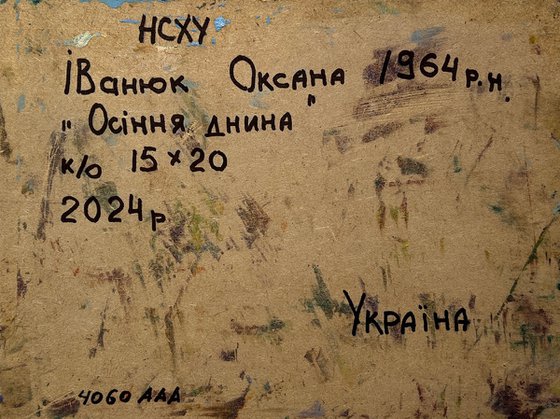 НСХУ
Іванюк Оксана 1964р.н.
"Осіння днина"
к/о 15×20
2024р
Україна
4060 ААА